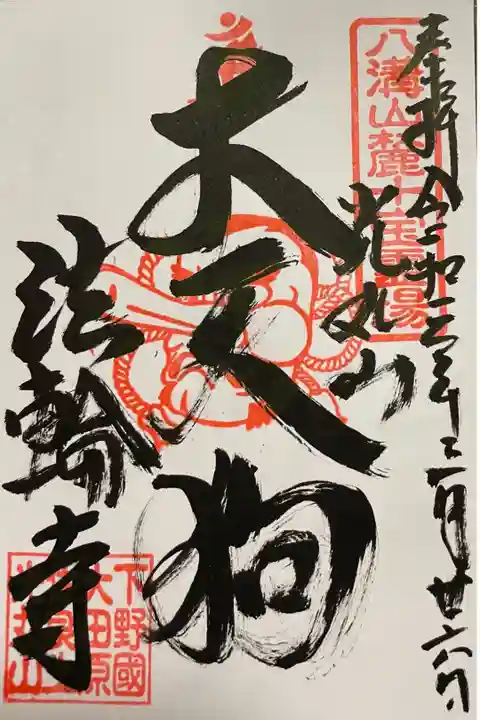 奉拝 令和三年三月廿六日
八溝山麓十宝霊場
光丸山
大天狗
法輪寺
下野國
大田原